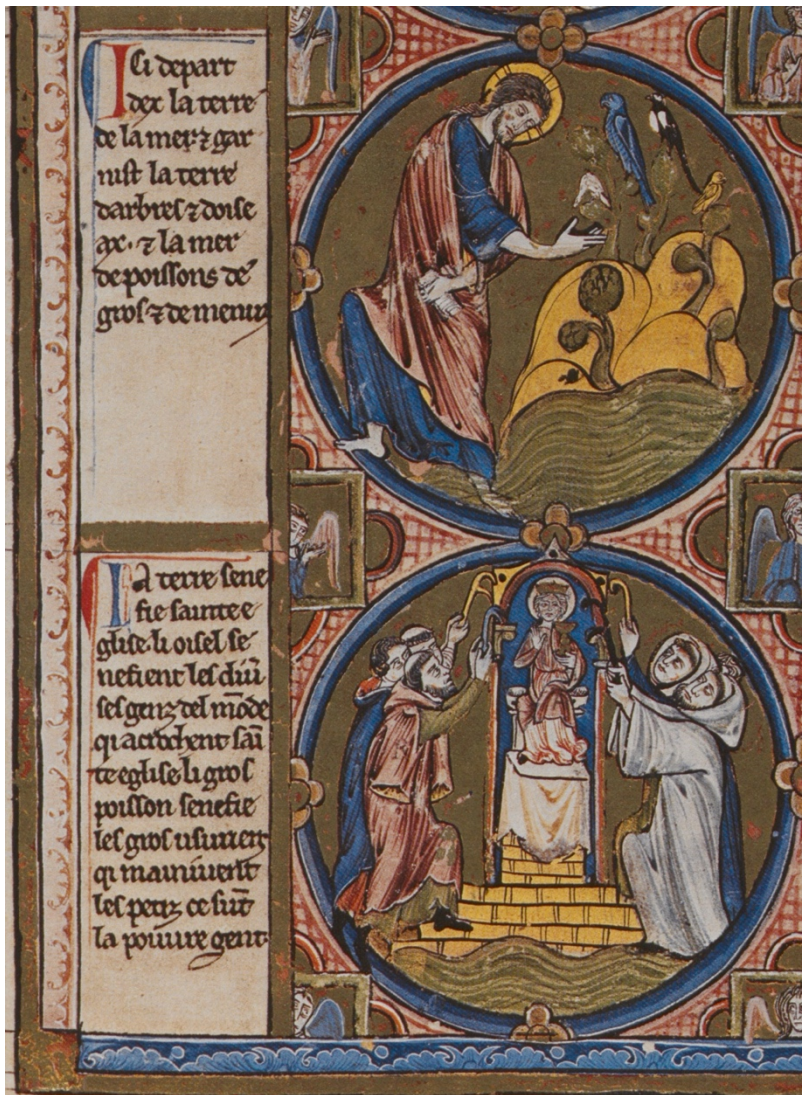 Ici depart
dex la terre
de la mer ⁊ gar
nist la terre
darbres ⁊ doise
ax · ⁊ la mer
de poissons de
gros ⁊ de menuz
La terre sene
fie sainte e
glise li oisel se
nefient les diũ
ses genz del mõde
qi acrochent sañ
te eglise li gros
poisson senefie
les gros usuriers
qi mainivent
les petiz ce sũt
la pouvre gent